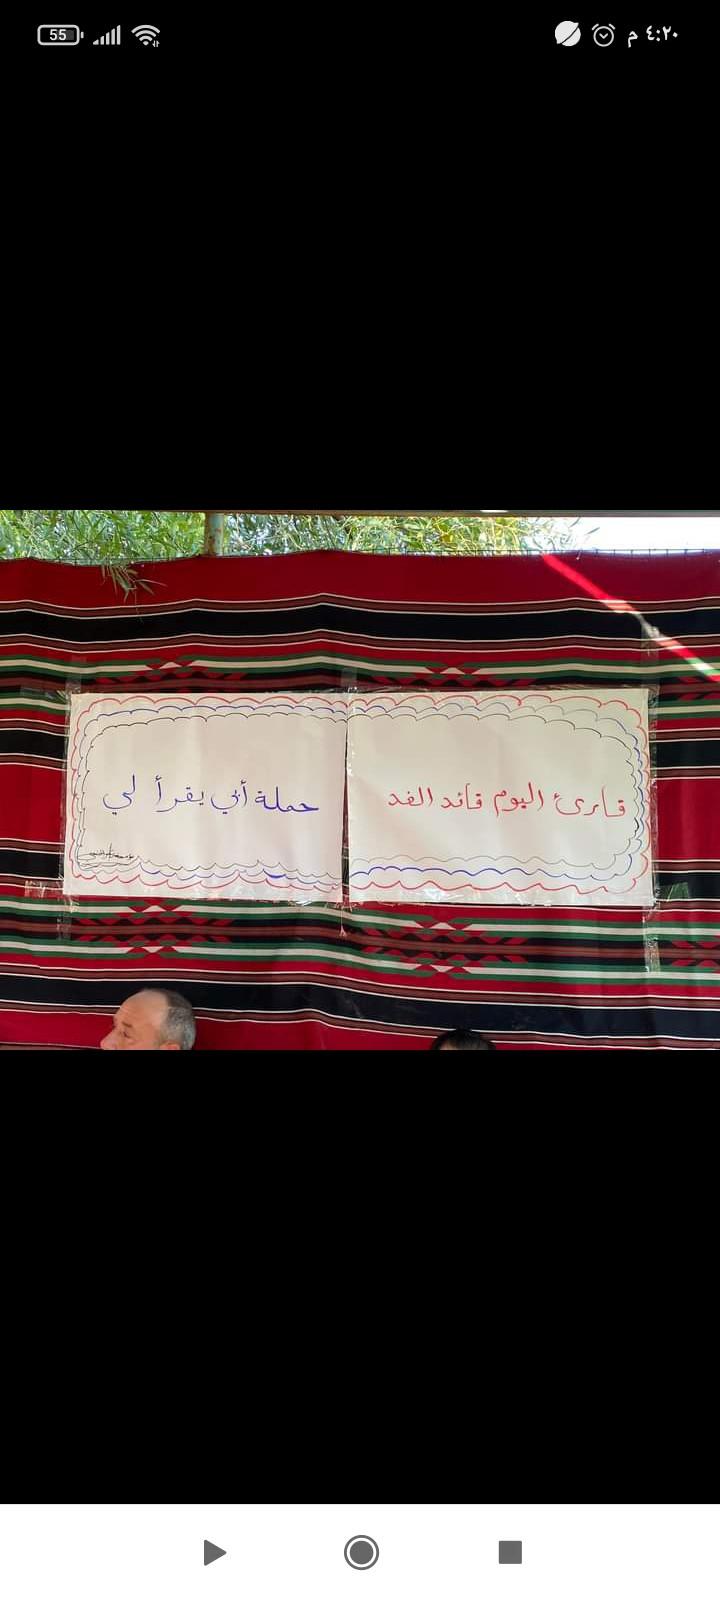 55
٤:٢٠ م
قارئ اليوم قائد الغد
حملة أبي يقرأ لي